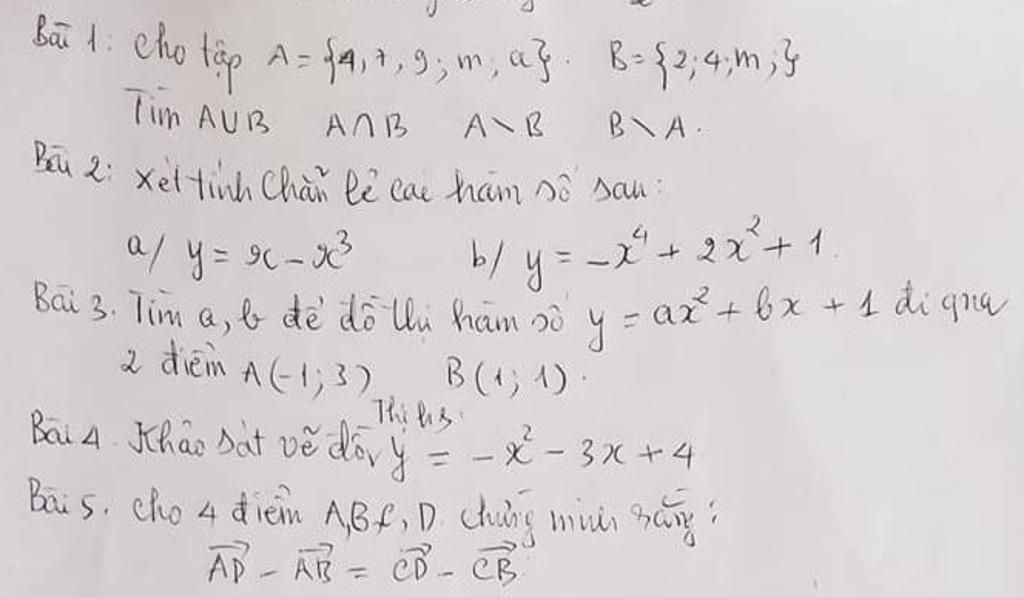 Bài 1: Cho tập A = {4, 7, 9; m, a}. B = {2; 4; m;}
Tìm A∪B A∩B A∖B B∖A.
Bài 2: Xét tính Chẵn lẻ các hàm số sau:
a/ y = x - x³ b/ y = -x⁴ + 2x² + 1.
Bài 3. Tìm a, b để đồ thị hàm số y = ax² + bx + 1 đi qua
2 điểm A(-1; 3) B(1; 1).
Thị h.s:
Bài 4. Khảo sát vẽ đồ y = -x² - 3x + 4
Bài 5. Cho 4 điểm A, B, C, D. Chứng minh rằng:
\overrightarrow{AD} - \overrightarrow{AB} = \overrightarrow{CD} - \overrightarrow{CB}